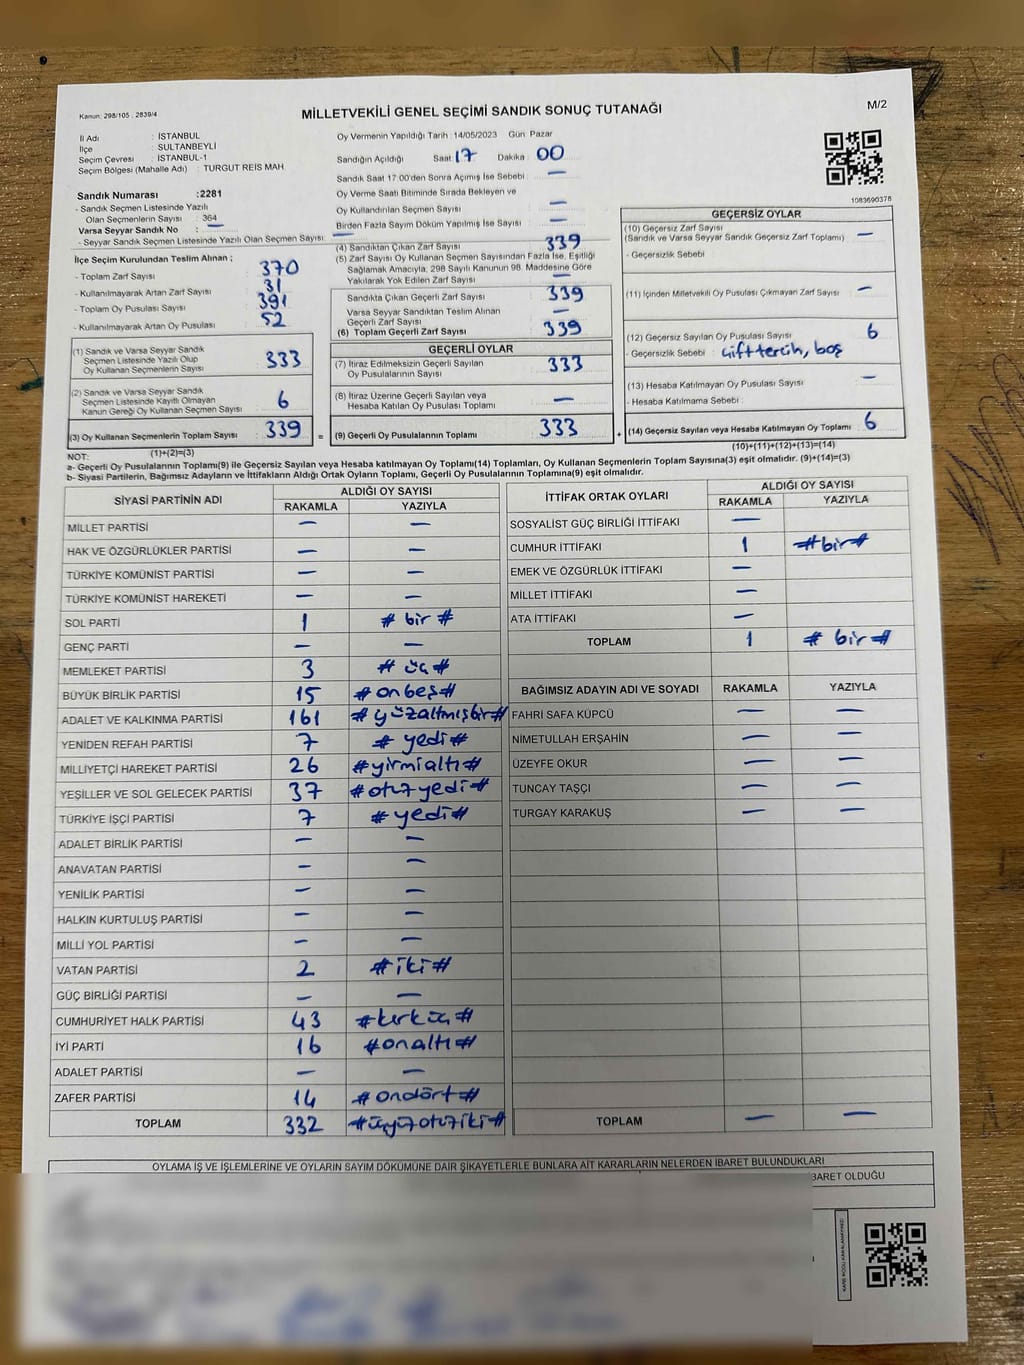 Kanun: 298/105 , 2839/4
MİLLETVEKİLİ GENEL SEÇİMİ SANDIK SONUÇ TUTANAĞI
M/2
İl Adı : İSTANBUL
İlçe : SULTANBEYLİ
Seçim Çevresi : İSTANBUL-1
Seçim Bölgesi (Mahalle Adı) : TURGUT REİS MAH
Oy Vermenin Yapıldığı Tarih : 14/05/2023 Gün: Pazar
Sandığın Açıldığı Saat: 17 Dakika : 00
Sandık Saat 17.00'den Sonra Açımış İse Sebebi : —
Oy Verme Saati Bitiminde Sırada Bekleyen ve
Oy Kullandırılan Seçmen Sayısı —
Birden Fazla Sayım Döküm Yapılmış İse Sayısı —
1083690378
Sandık Numarası :2281
- Sandık Seçmen Listesinde Yazılı
Olan Seçmenlerin Sayısı : 364
Varsa Seyyar Sandık No : —
- Seyyar Sandık Seçmen Listesinde Yazılı Olan Seçmen Sayısı: —
İlçe Seçim Kurulundan Teslim Alınan ;
- Toplam Zarf Sayısı : 370
- Kullanılmayarak Artan Zarf Sayısı : 31
- Toplam Oy Pusulası Sayısı : 391
- Kullanılmayarak Artan Oy Pusulası : 52
(1) Sandık ve Varsa Seyyar Sandık
Seçmen Listesinde Yazılı Olup
Oy Kullanan Seçmenlerin Sayısı : 333
(2) Sandık ve Varsa Seyyar Sandık
Seçmen Listesinde Kayıtlı Olmayan
Kanun Gereği Oy Kullanan Seçmen Sayısı : 6
(3) Oy Kullanan Seçmenlerin Toplam Sayısı : 339 =
(1)+(2)=(3)
(4) Sandıktan Çıkan Zarf Sayısı : 339
(5) Zarf Sayısı Oy Kullanan Seçmen Sayısından Fazla İse, Eşitliği
Sağlamak Amacıyla, 298 Sayılı Kanunun 98. Maddesine Göre
Yakılarak Yok Edilen Zarf Sayısı : —
Sandıkta Çıkan Geçerli Zarf Sayısı : 339
Varsa Seyyar Sandıktan Teslim Alınan
Geçerli Zarf Sayısı : —
(6) Toplam Geçerli Zarf Sayısı : 339
GEÇERLİ OYLAR
(7) İtiraz Edilmeksizin Geçerli Sayılan
Oy Pusulalarının Sayısı : 333
(8) İtiraz Üzerine Geçerli Sayılan veya
Hesaba Katılan Oy Pusulası Toplamı : —
(9) Geçerli Oy Pusulalarının Toplamı : 333 +
GEÇERSİZ OYLAR
(10) Geçersiz Zarf Sayısı
(Sandık ve Varsa Seyyar Sandık Geçersiz Zarf Toplamı) : —
- Geçersizlik Sebebi :
(11) İçinden Milletvekili Oy Pusulası Çıkmayan Zarf Sayısı : —
(12) Geçersiz Sayılan Oy Pusulası Sayısı : 6
Geçersizlik Sebebi : çift tercih, boş
(13) Hesaba Katılmayan Oy Pusulası Sayısı : —
- Hesaba Katılmama Sebebi :
(14) Geçersiz Sayılan veya Hesaba Katılmayan Oy Toplamı : 6
(10)+(11)+(12)+(13)=(14)
NOT:
a- Geçerli Oy Pusulalarının Toplamı(9) ile Geçersiz Sayılan veya Hesaba katılmayan Oy Toplamı(14) Toplamları, Oy Kullanan Seçmenlerin Toplam Sayısına(3) eşit olmalıdır. (9)+(14)=(3)
b- Siyasi Partilerin, Bağımsız Adayların ve İttifakların Aldığı Ortak Oyların Toplamı, Geçerli Oy Pusulalarının Toplamına(9) eşit olmalıdır.
SİYASİ PARTİNİN ADI ALDIĞI OY SAYISI
RAKAMLA YAZIYLA
MİLLET PARTİSİ — —
HAK VE ÖZGÜRLÜKLER PARTİSİ — —
TÜRKİYE KOMÜNİST PARTİSİ — —
TÜRKİYE KOMÜNİST HAREKETİ — —
SOL PARTİ 1 # bir #
GENÇ PARTİ — —
MEMLEKET PARTİSİ 3 # üç #
BÜYÜK BİRLİK PARTİSİ 15 # onbeş #
ADALET VE KALKINMA PARTİSİ 161 # yüzaltmışbir #
YENİDEN REFAH PARTİSİ 7 # yedi #
MİLLİYETÇİ HAREKET PARTİSİ 26 # yirmialtı #
YEŞİLLER VE SOL GELECEK PARTİSİ 37 # otuzyedi #
TÜRKİYE İŞÇİ PARTİSİ 7 # yedi #
ADALET BİRLİK PARTİSİ — —
ANAVATAN PARTİSİ — —
YENİLİK PARTİSİ — —
HALKIN KURTULUŞ PARTİSİ — —
MİLLİ YOL PARTİSİ — —
VATAN PARTİSİ 2 # iki #
GÜÇ BİRLİĞİ PARTİSİ — —
CUMHURİYET HALK PARTİSİ 43 # kırküç #
İYİ PARTİ 16 # onaltı #
ADALET PARTİSİ — —
ZAFER PARTİSİ 14 # ondört #
TOPLAM 332 # üçyüzotuziki #
İTTİFAK ORTAK OYLARI ALDIĞI OY SAYISI
RAKAMLA YAZIYLA
SOSYALİST GÜÇ BİRLİĞİ İTTİFAKI —
CUMHUR İTTİFAKI 1 # bir #
EMEK VE ÖZGÜRLÜK İTTİFAKI —
MİLLET İTTİFAKI —
ATA İTTİFAKI —
TOPLAM 1 # bir #
BAĞIMSIZ ADAYIN ADI VE SOYADI RAKAMLA YAZIYLA
FAHRİ SAFA KÜPCÜ — —
NİMETULLAH ERŞAHİN — —
ÜZEYFE OKUR — —
TUNCAY TAŞÇI — —
TURGAY KARAKUŞ — —
TOPLAM — —
OYLAMA İŞ VE İŞLEMLERİNE VE OYLARIN SAYIM DÖKÜMÜNE DAİR ŞİKAYETLERLE BUNLARA AİT KARARLARIN NELERDEN İBARET BULUNDUKLARI
İBARET OLDUĞU